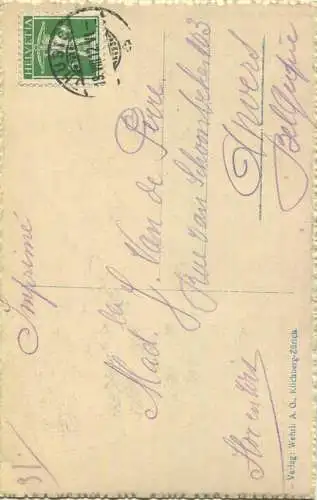 HELVETIA
Imprimé
Mad.lle J. Van de Perre
Rue van Schoonbeke 103
Anvers
Belgique
Verlag: Wehrli A. G., Kilchberg-Zürich
31